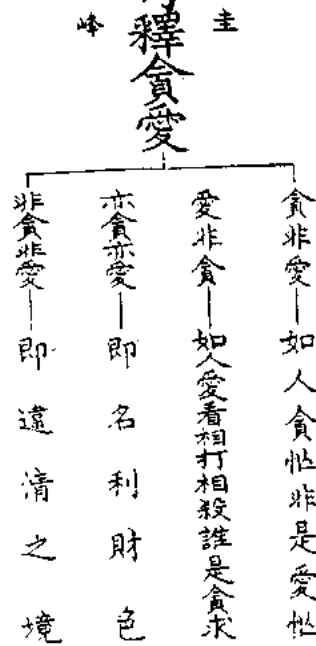 圭峰
釋貪愛
貪非愛—如人貪忙非是愛忙
愛非貪—如人愛看相打相殺誰是貪求
亦貪亦愛—即名利財色
非貪非愛—即違清之境